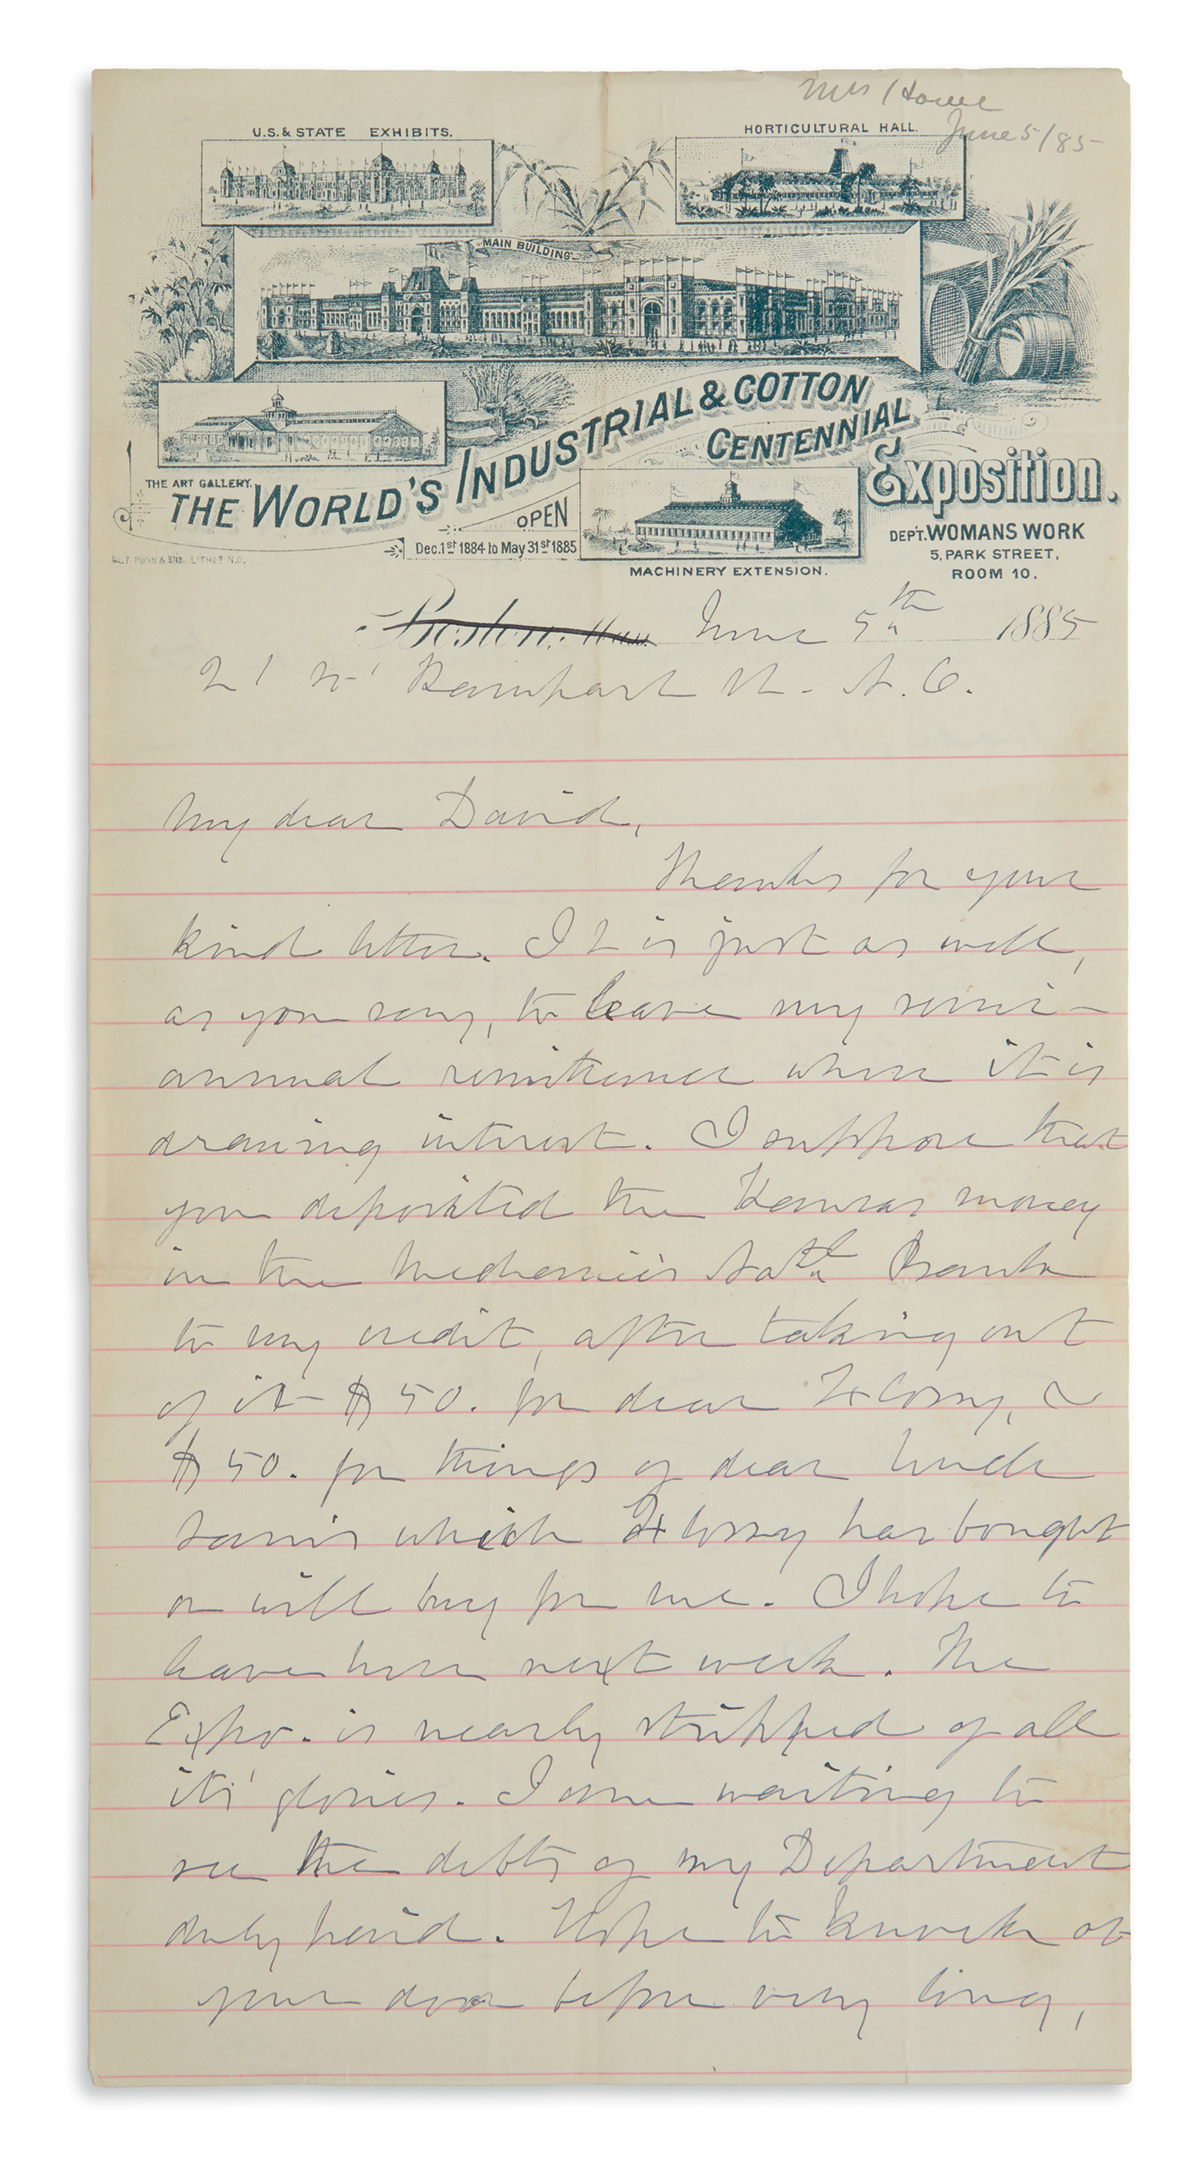 Mrs Howe
June 5/85
U.S. & STATE EXHIBITS.
HORTICULTURAL HALL.
MAIN BUILDING
THE ART GALLERY.
THE WORLD'S INDUSTRIAL & COTTON
CENTENNIAL
Exposition.
OPEN
Dec. 1st 1884 to May 31st 1885
MACHINERY EXTENSION.
DEP'T. WOMANS WORK
5, PARK STREET,
ROOM 10.
& BRO. LITHOS N.O.
Boston, Mass. June 5th 1885
Rampart St. N.O.
My dear David,
Thanks for your
kind letter. It is just as well,
as you say, to leave my semi-
annual remittance where it is
drawing interest. I suppose that
you deposited the Kansas money
in the Mechanic's Natl Bank
to my credit, after taking out
of it $50. for dear Flossy, &
$50. for things of dear Uncle
Sam's which Flossy has bought
or will buy for me. I hope to
leave here next week. The
Expo. is nearly stripped of all
its' glories. I am waiting to
see the debts of my Department
duly paid. Hope to knock at
your door before very long,